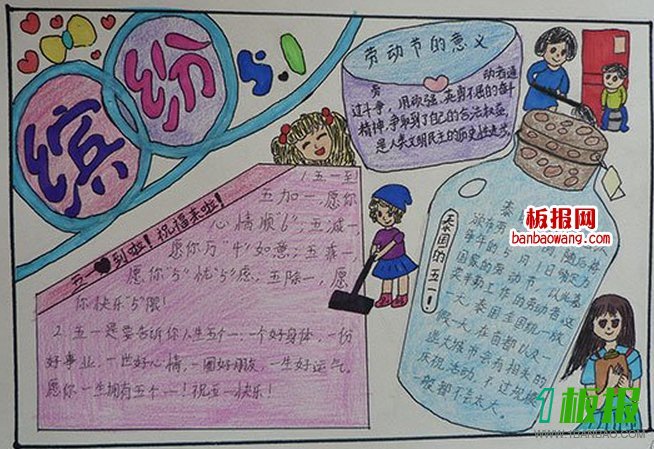 缤纷5.1
劳动节的意义
劳 动者通
过斗争,用顽强、英勇不屈的奋斗
精神,争取到了自己的合法权益,
是人类文明民主的历史性进步。
五一♥到啦!祝福来啦!
1.五一到
五加一,愿你
心情顺"6",五减一,
愿你万"4"如意,五乘一,
愿你"5"忧"5"虑,五除一,愿
你快乐"5"限!
2.五一是要告诉你人生五个一:一个好身体,一份
好事业,一世好心情,一圈好朋友,一生好运气。
愿你一生拥有五个一!祝五一快乐!
泰国的五一!
泰
板报网
banbaowang.com
每年的5月 日确定为
国家的劳动节,以此慰
劳辛勤工作的劳动者这
一天,泰国全国统一放
假一天,在首都以及一
些大城市会有相关的
庆祝活动,不过规模一
般都不会太大。
1板报
WWW.1BANBAO.COM